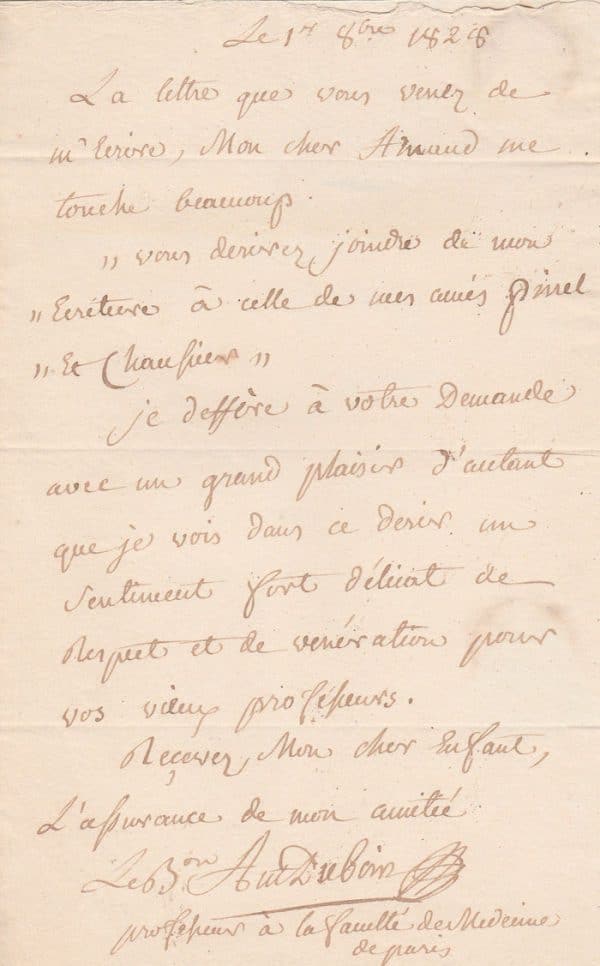 Le 1er 8bre 1828
La lettre que vous venez de
m'Ecrire, Mon cher Amand me
touche beaucoup.
„ vous desirez joindre de mon
„ Ecriture à celle de mes amis Pinel
„ Et Chaussier „
je deffère à votre Demande
avec un grand plaisir d'autant
que je vois dans ce desir un
sentiment fort délicat de
Respect et de venération pour
vos vieux professeurs.
Reçevez, Mon cher Enfant,
L'assurance de mon amitié
Le Bon Ant Dubois
professeur à la faculté de Medecine
de paris